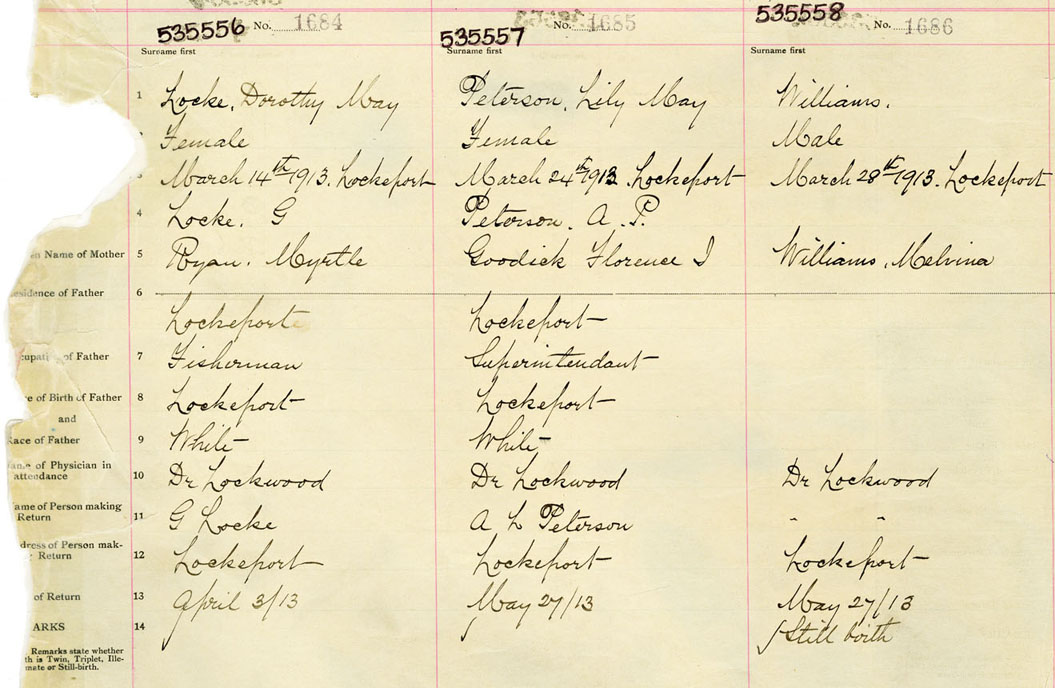 535556 No. 1684
535557 No. 1685
535558 No. 1686
Surname first Surname first Surname first
1 Locke, Dorothy May Peterson, Lily May Williams.
Female Female Male
March 14th 1913. Lockeport March 24th 1913. Lockeport March 28th 1913. Lockeport
4 Locke. G Peterson. A. P.
Name of Mother 5 Ryan. Myrtle Goodick Florence I Williams, Melvina
of Father 6
Lockeport Lockeport
of Father 7 Fisherman Superintendant
of Birth of Father 8 Lockeport Lockeport
and
Race of Father 9 White White
of Physician in
attendance 10 Dr Lockwood Dr Lockwood Dr Lockwood
ame of Person making
Return 11 G Locke A L Peterson " "
dress of Person mak-
Return 12 Lockeport Lockeport Lockeport
of Return 13 April 3/13 May 27/13 May 27/13
ARKS 14 Still birth
Remarks state whether
th is Twin, Triplet, Ille-
mate or Still-birth.